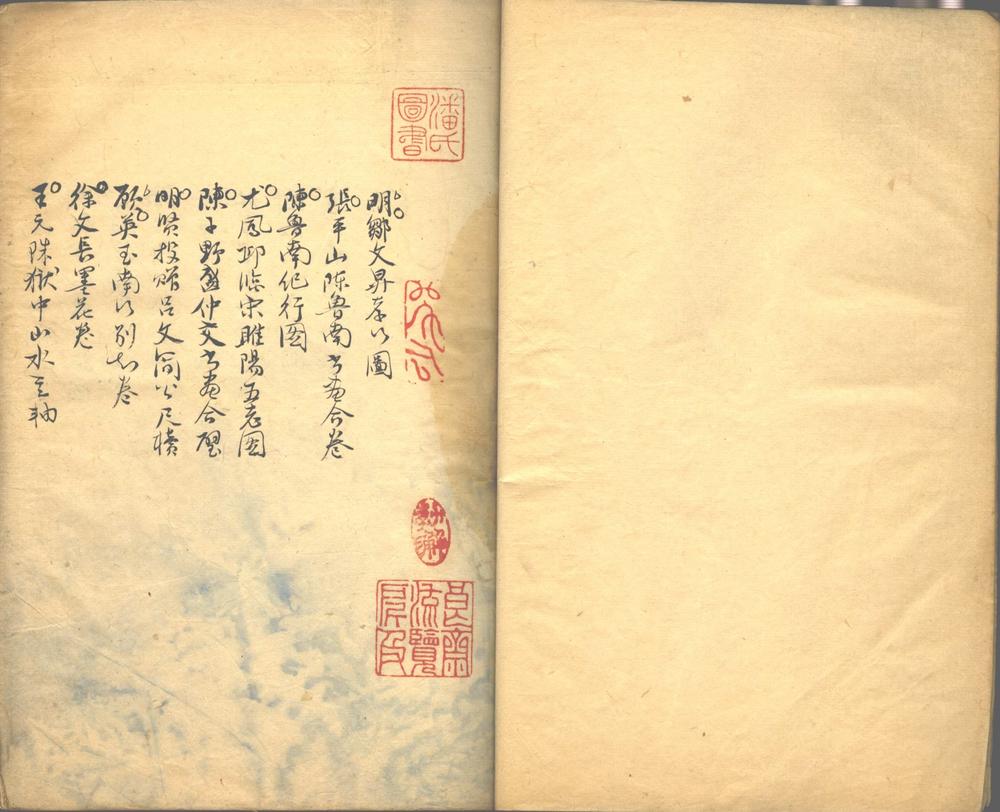 潘氏
圖書
明鄒文昇孝行圖
張平山陳魯南書畫合卷
陳魯南紀行圖
尤鳳邱臨宋睢陽五老圖
陳子野盛仲交書畫合璧
明賢投贈呂文簡公尺牘
顧英玉南行別知卷
徐文長墨花卷
王元珠獄中山水立軸
艮齋
流覽
所及